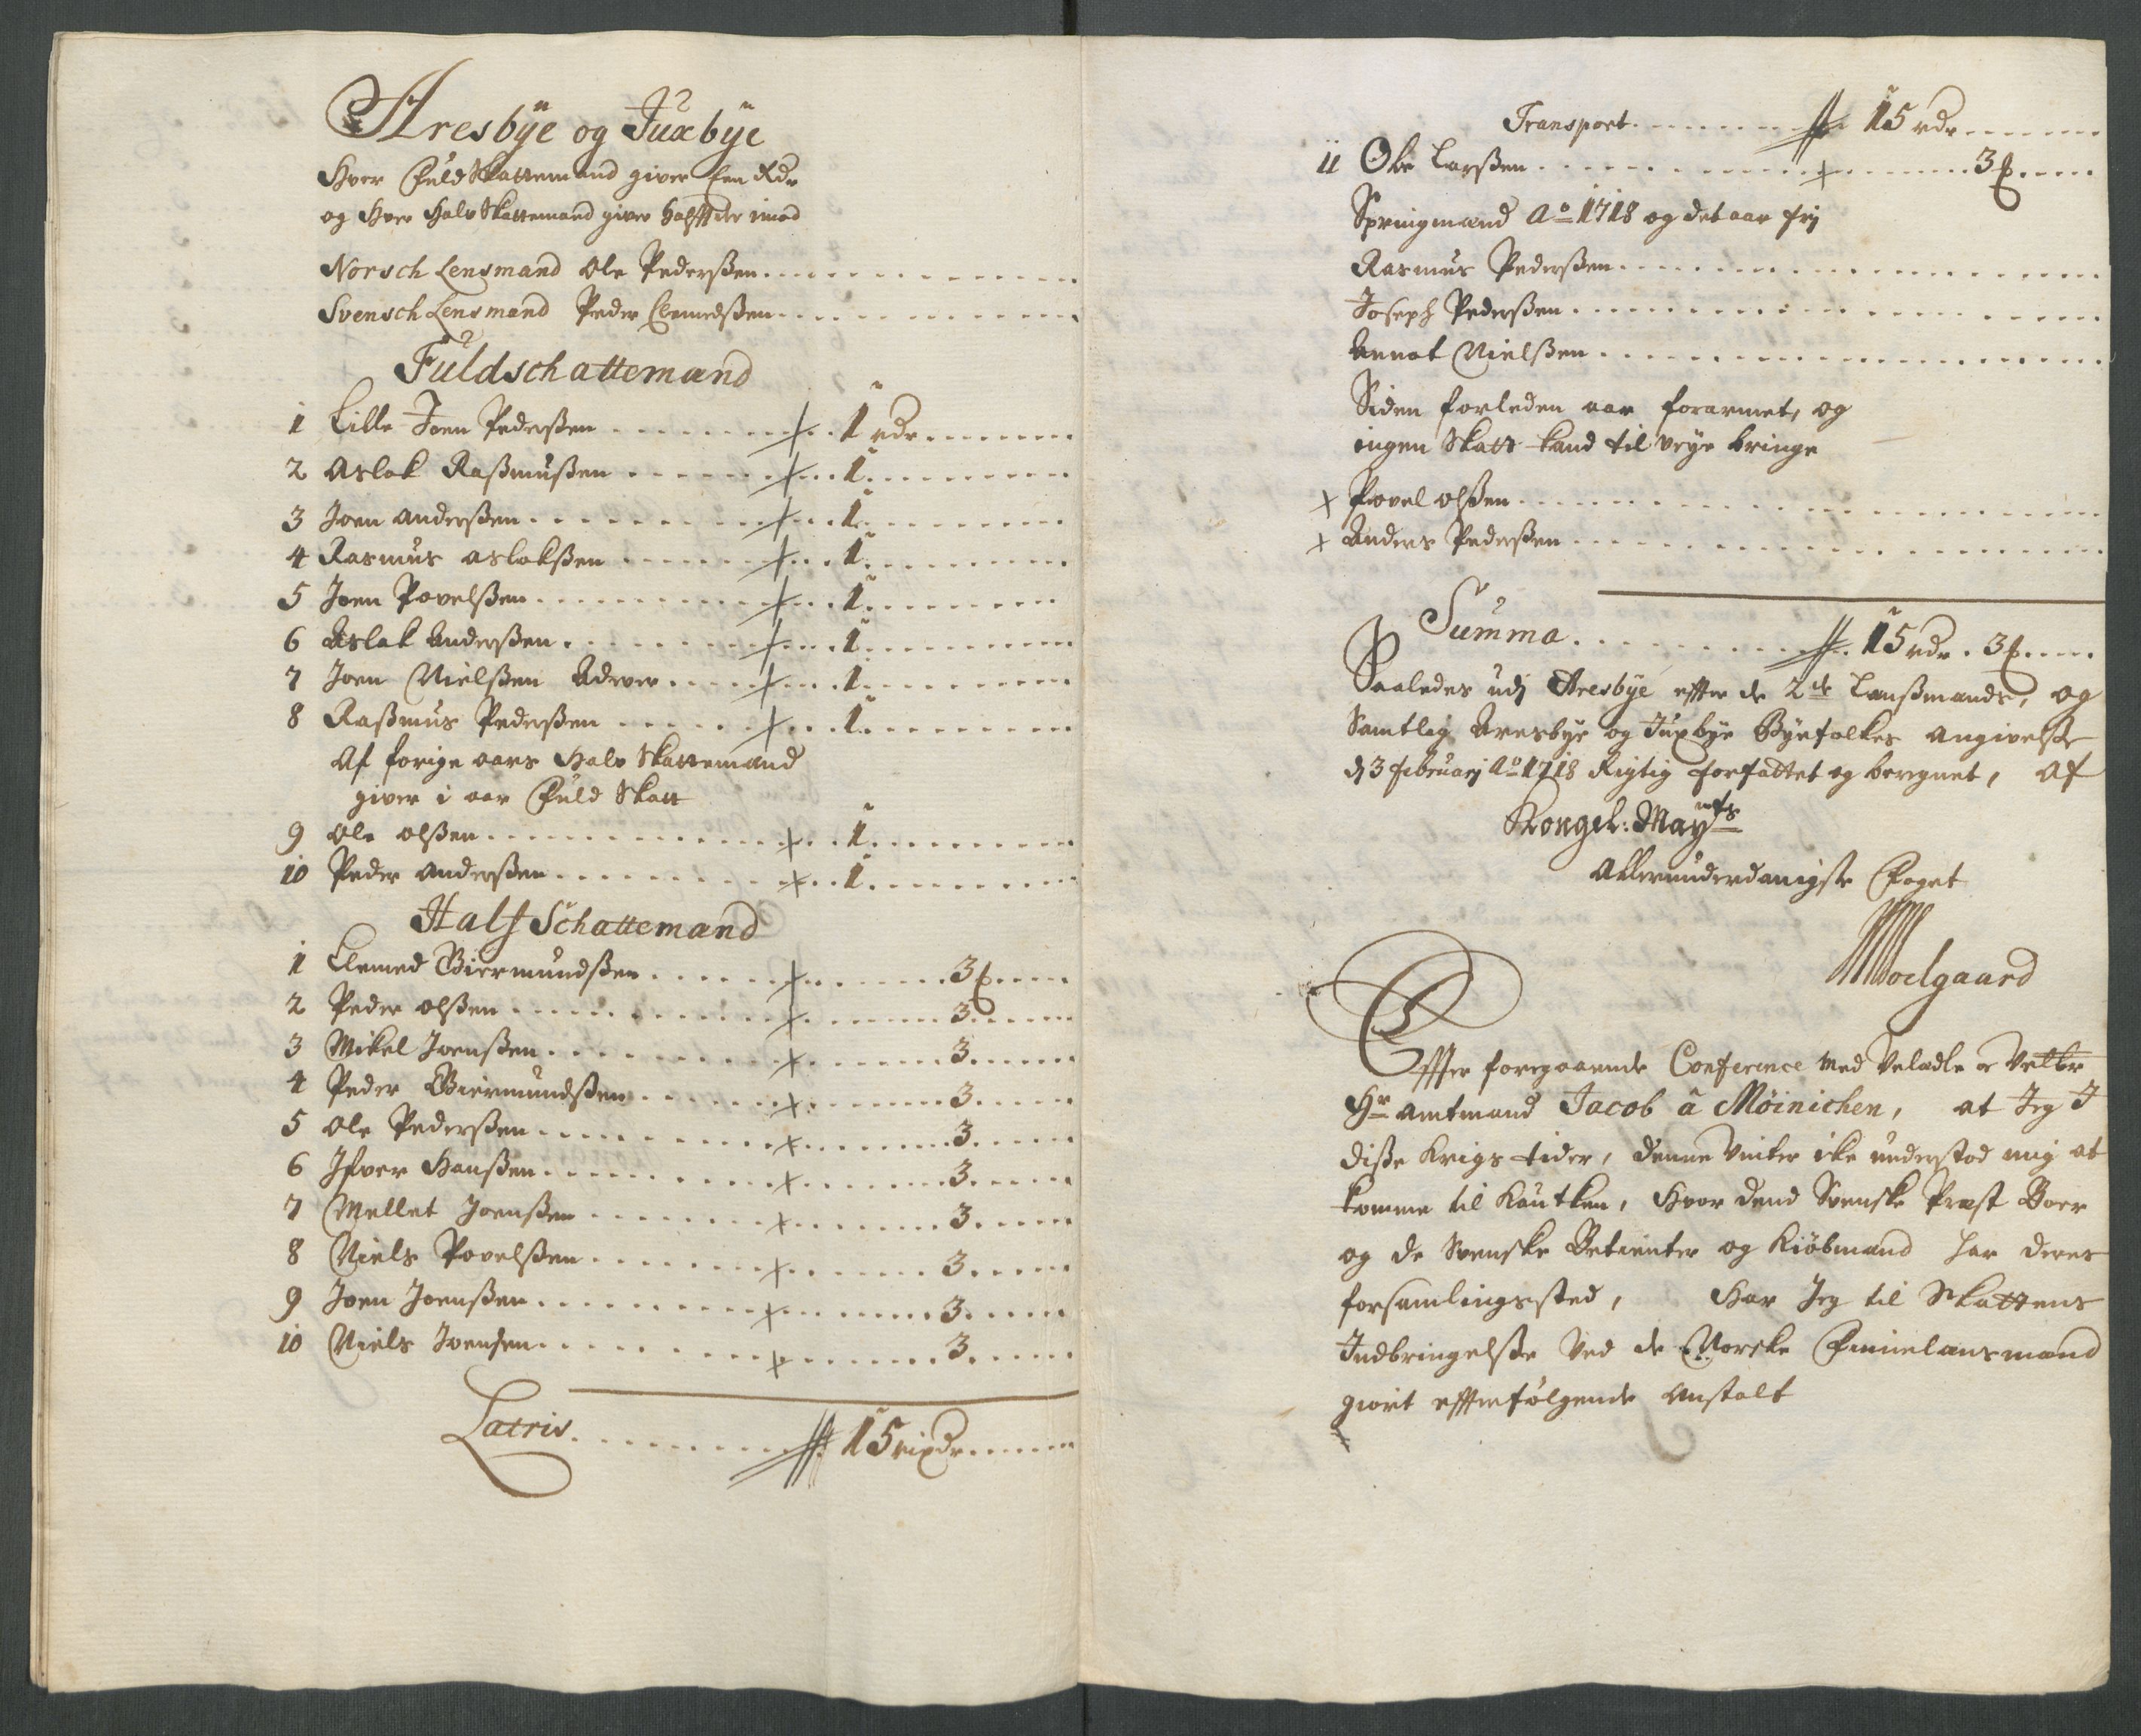 Aresbÿe og Juxbÿe
Hver Fuld Skattemand giver Een Rdr
og Hver Halv Skattemand giver halfft der imod
Norsch Lensmand Ole Pederßen
Svensch Lensmand Peder Clemedßen
Fuldschattemænd
1 Lille Joen Pederßen 1 rdr
2 Aslak Raßmußen 1
3 Joen Anderßen 1
4 Rasmus Aslakßen 1
5 Joen Povelßen 1
6 Aslak Anderßen 1
7 Joen Nielßen Adever 1
8 Raßmus Pederßen 1
Af forige aars Halv Skattemænd
giver i aar Fuld Skatt
9 Ole Olßen 1
10 Peder Anderßen 1
Half Schattemænd
1 Clemed Biermundßen 3 ₰
2 Peder Olßen 3
3 Mikel Joenßen 3
4 Peder Biermundßen 3
5 Ole Pederßen 3
6 Ifver Hanßen 3
7 Mellet Joenßen 3
8 Niels Povelßen 3
9 Joen Joenßen 3
10 Niels Joensen 3
Latris 15 rixdr
Transport 15 rdr
11 Ole Larßen 3 ₰
Springmænd Ao 1718 og det aar frj
Rasmus Pederßen
Joseph Pederßen
Annat Nielßen
Siden forleden aar forarmet, og
ingen Skatt kand til veÿe bringe
× Povel Olßen
× Anders Pederßen
Summa 15 rdr 3 ₰
Saaledes udj Aresbÿe effter de 2de Lenßmænds, og
Samtlig Aresbÿe og Juxbÿe Bÿefolkes Angivelße
d 3 februarj Ao 1718 Rigtig forfattet og beregnet, Af
Kongel: Mayts
Allerunderdanigste Foget
Woelgaard
Effter foregaaende Conference med Velædle og Velbr
Hr Amtmand Jacob â Møinichen, at Jeg I
diße Krigs tider, denne Vinter icke understod mig at
komme til Kautken, Hvor dend Svenske Præst Boer
og de Svenske Betienter og Kiøbmænd har deres
forsamlingssted, Har Jeg til Skattens
Indbringelße Ved de Norske Finnelensmænd
giort effterfølgende Anstalt